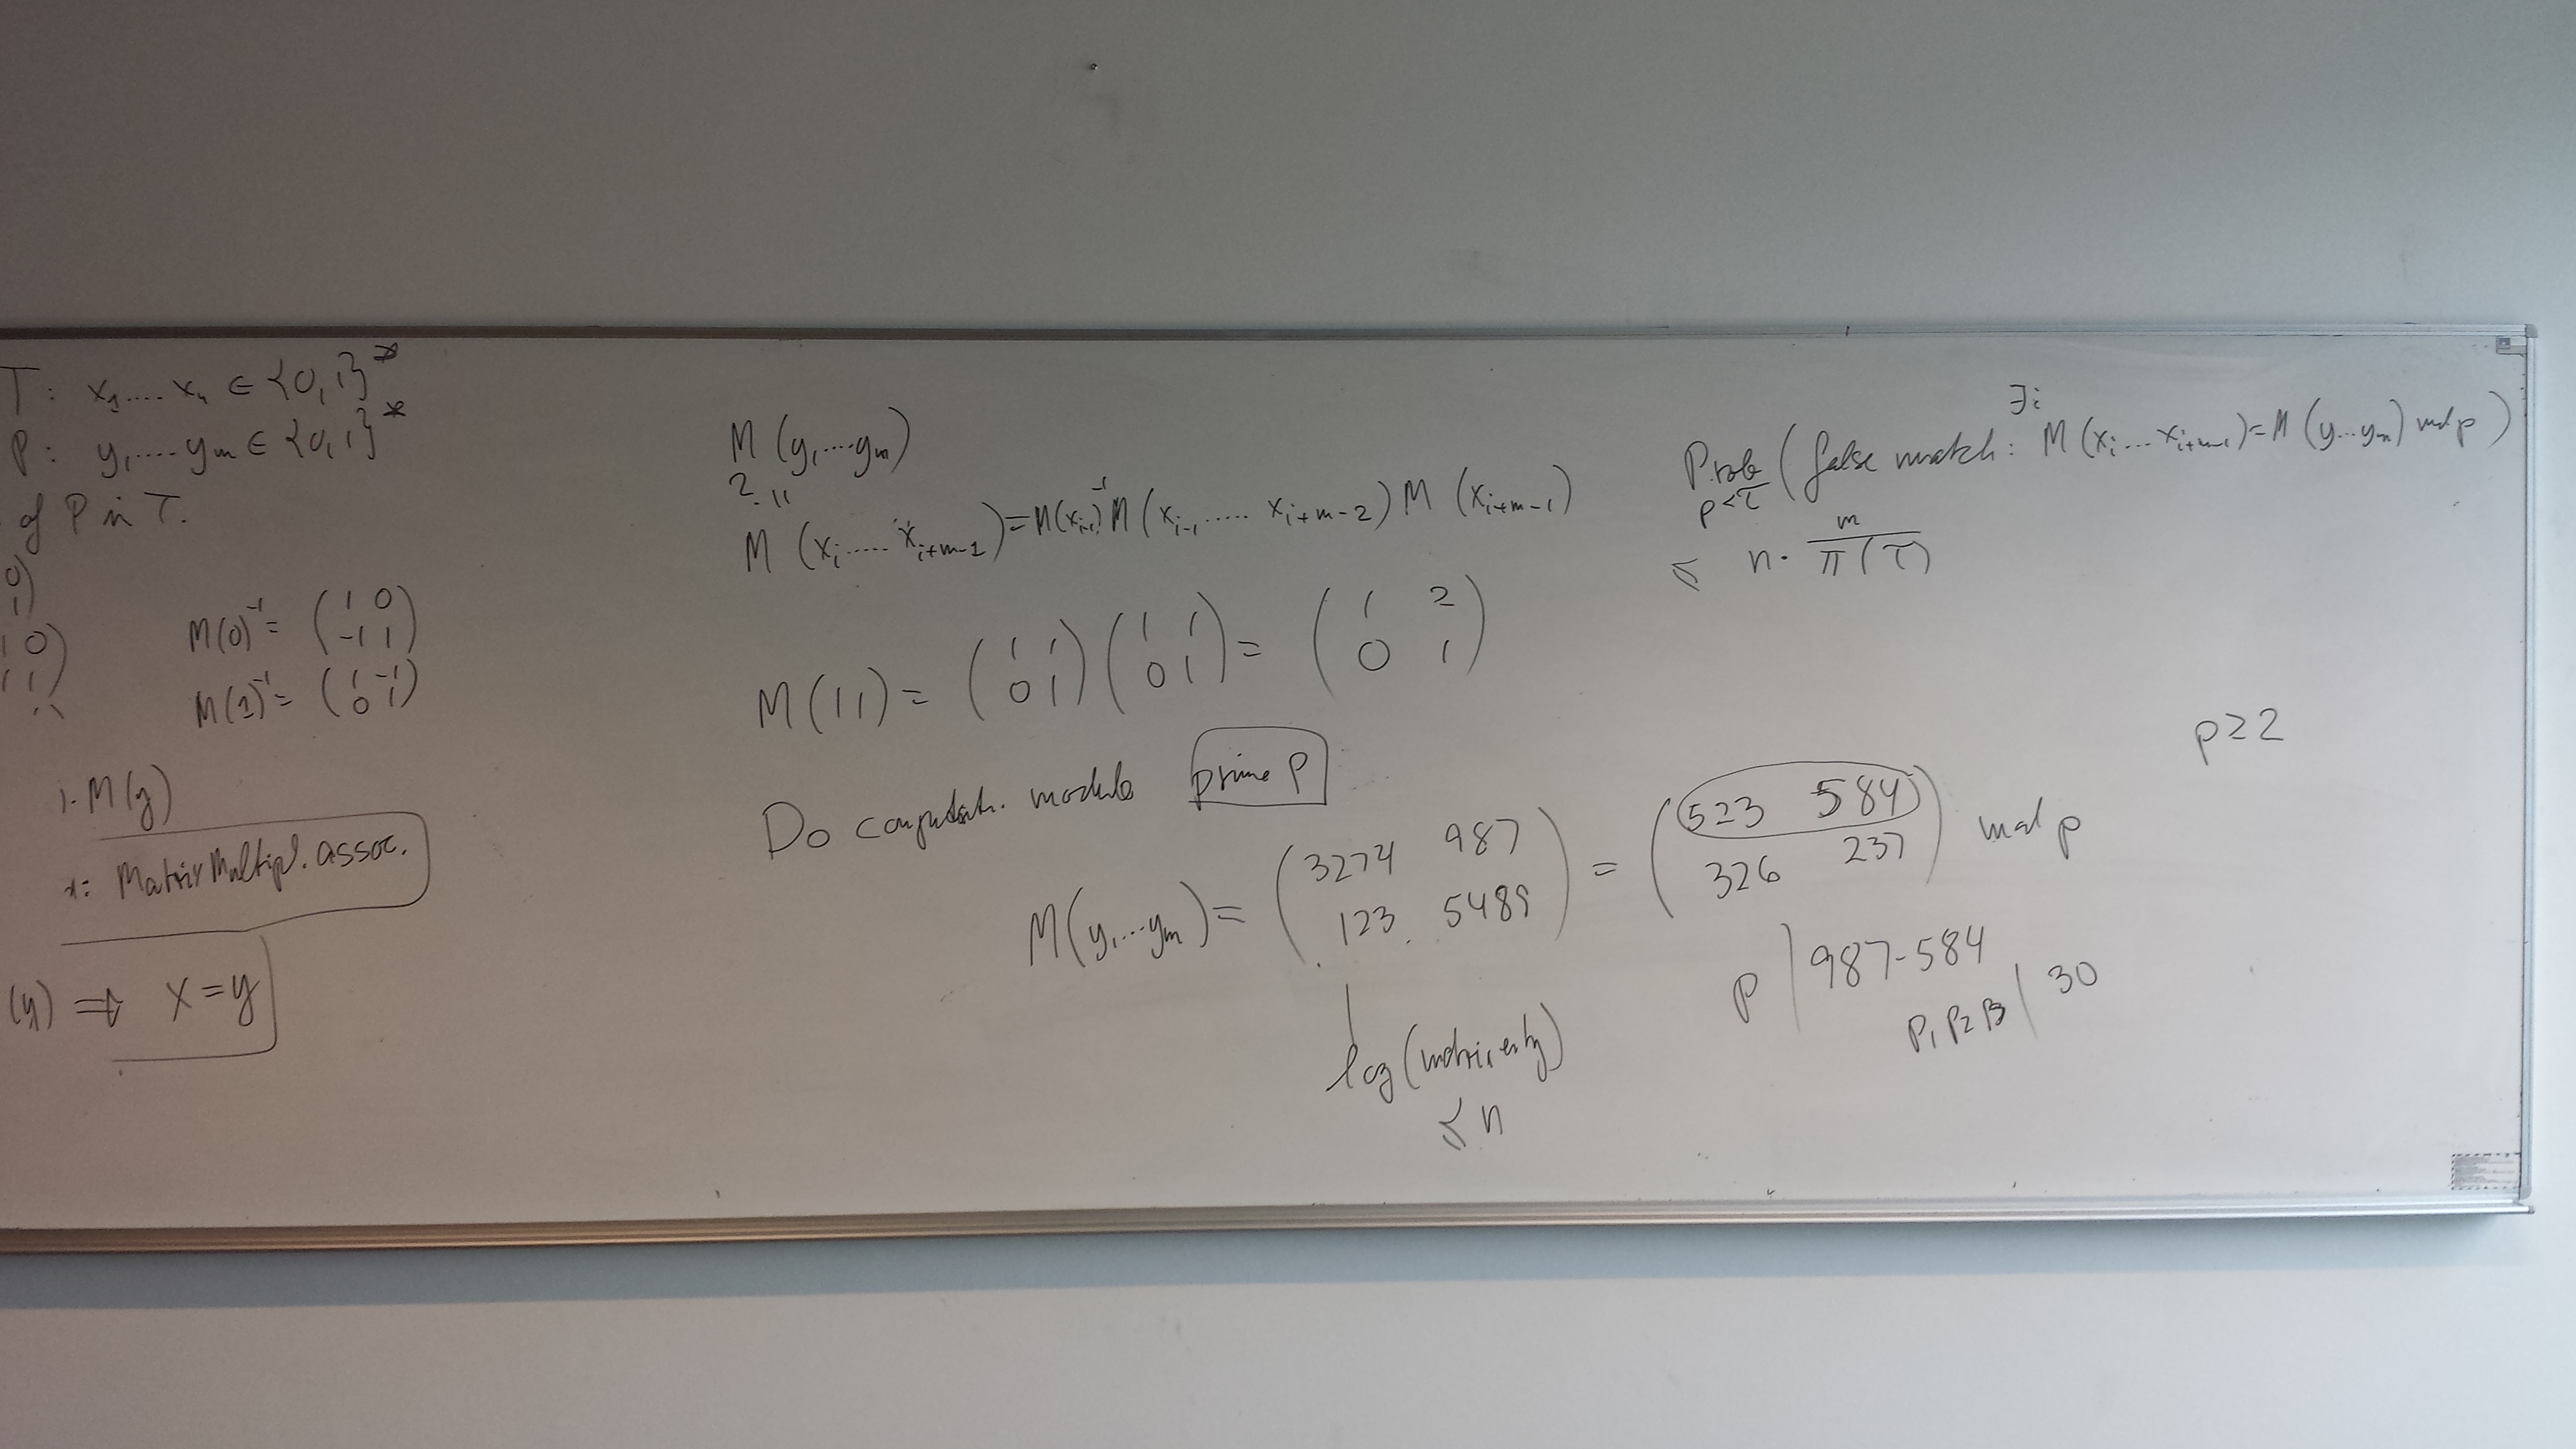 T: x₁.... xₙ ∈ {0,1}*
P: y₁.... yₘ ∈ {0,1}*
of P in T.
0)
1)
1 0)
1 1)
M(0)⁻¹ = (1 0
-1 1)
M(1)⁻¹ = (1 -1
0 1)
). M(y)
: Matrix Multipl. assoc.
(y) ⇒ x = y
M (y₁....yₘ)
? =
M (xᵢ..... xᵢ₊ₘ₋₁) = M(xᵢ₋₁)⁻¹ M (xᵢ₋₁..... xᵢ₊ₘ₋₂) M (xᵢ₊ₘ₋₁)
M (11) = (1 1
0 1) (1 1
0 1) = (1 2
0 1)
Do computat. modulo prime p
M(y₁...yₘ) = (3274 987
123 5489) = (523 584
326 237) mod p
log (matrix entry)
≤ n
∃i
Prob (false match: M (xᵢ... xᵢ₊ₘ₋₁) = M (y...yₘ) mod p)
p<τ
≤ n · m / π(τ)
p ≥ 2
p | 987-584
p₁ p₂ p₃ | 30